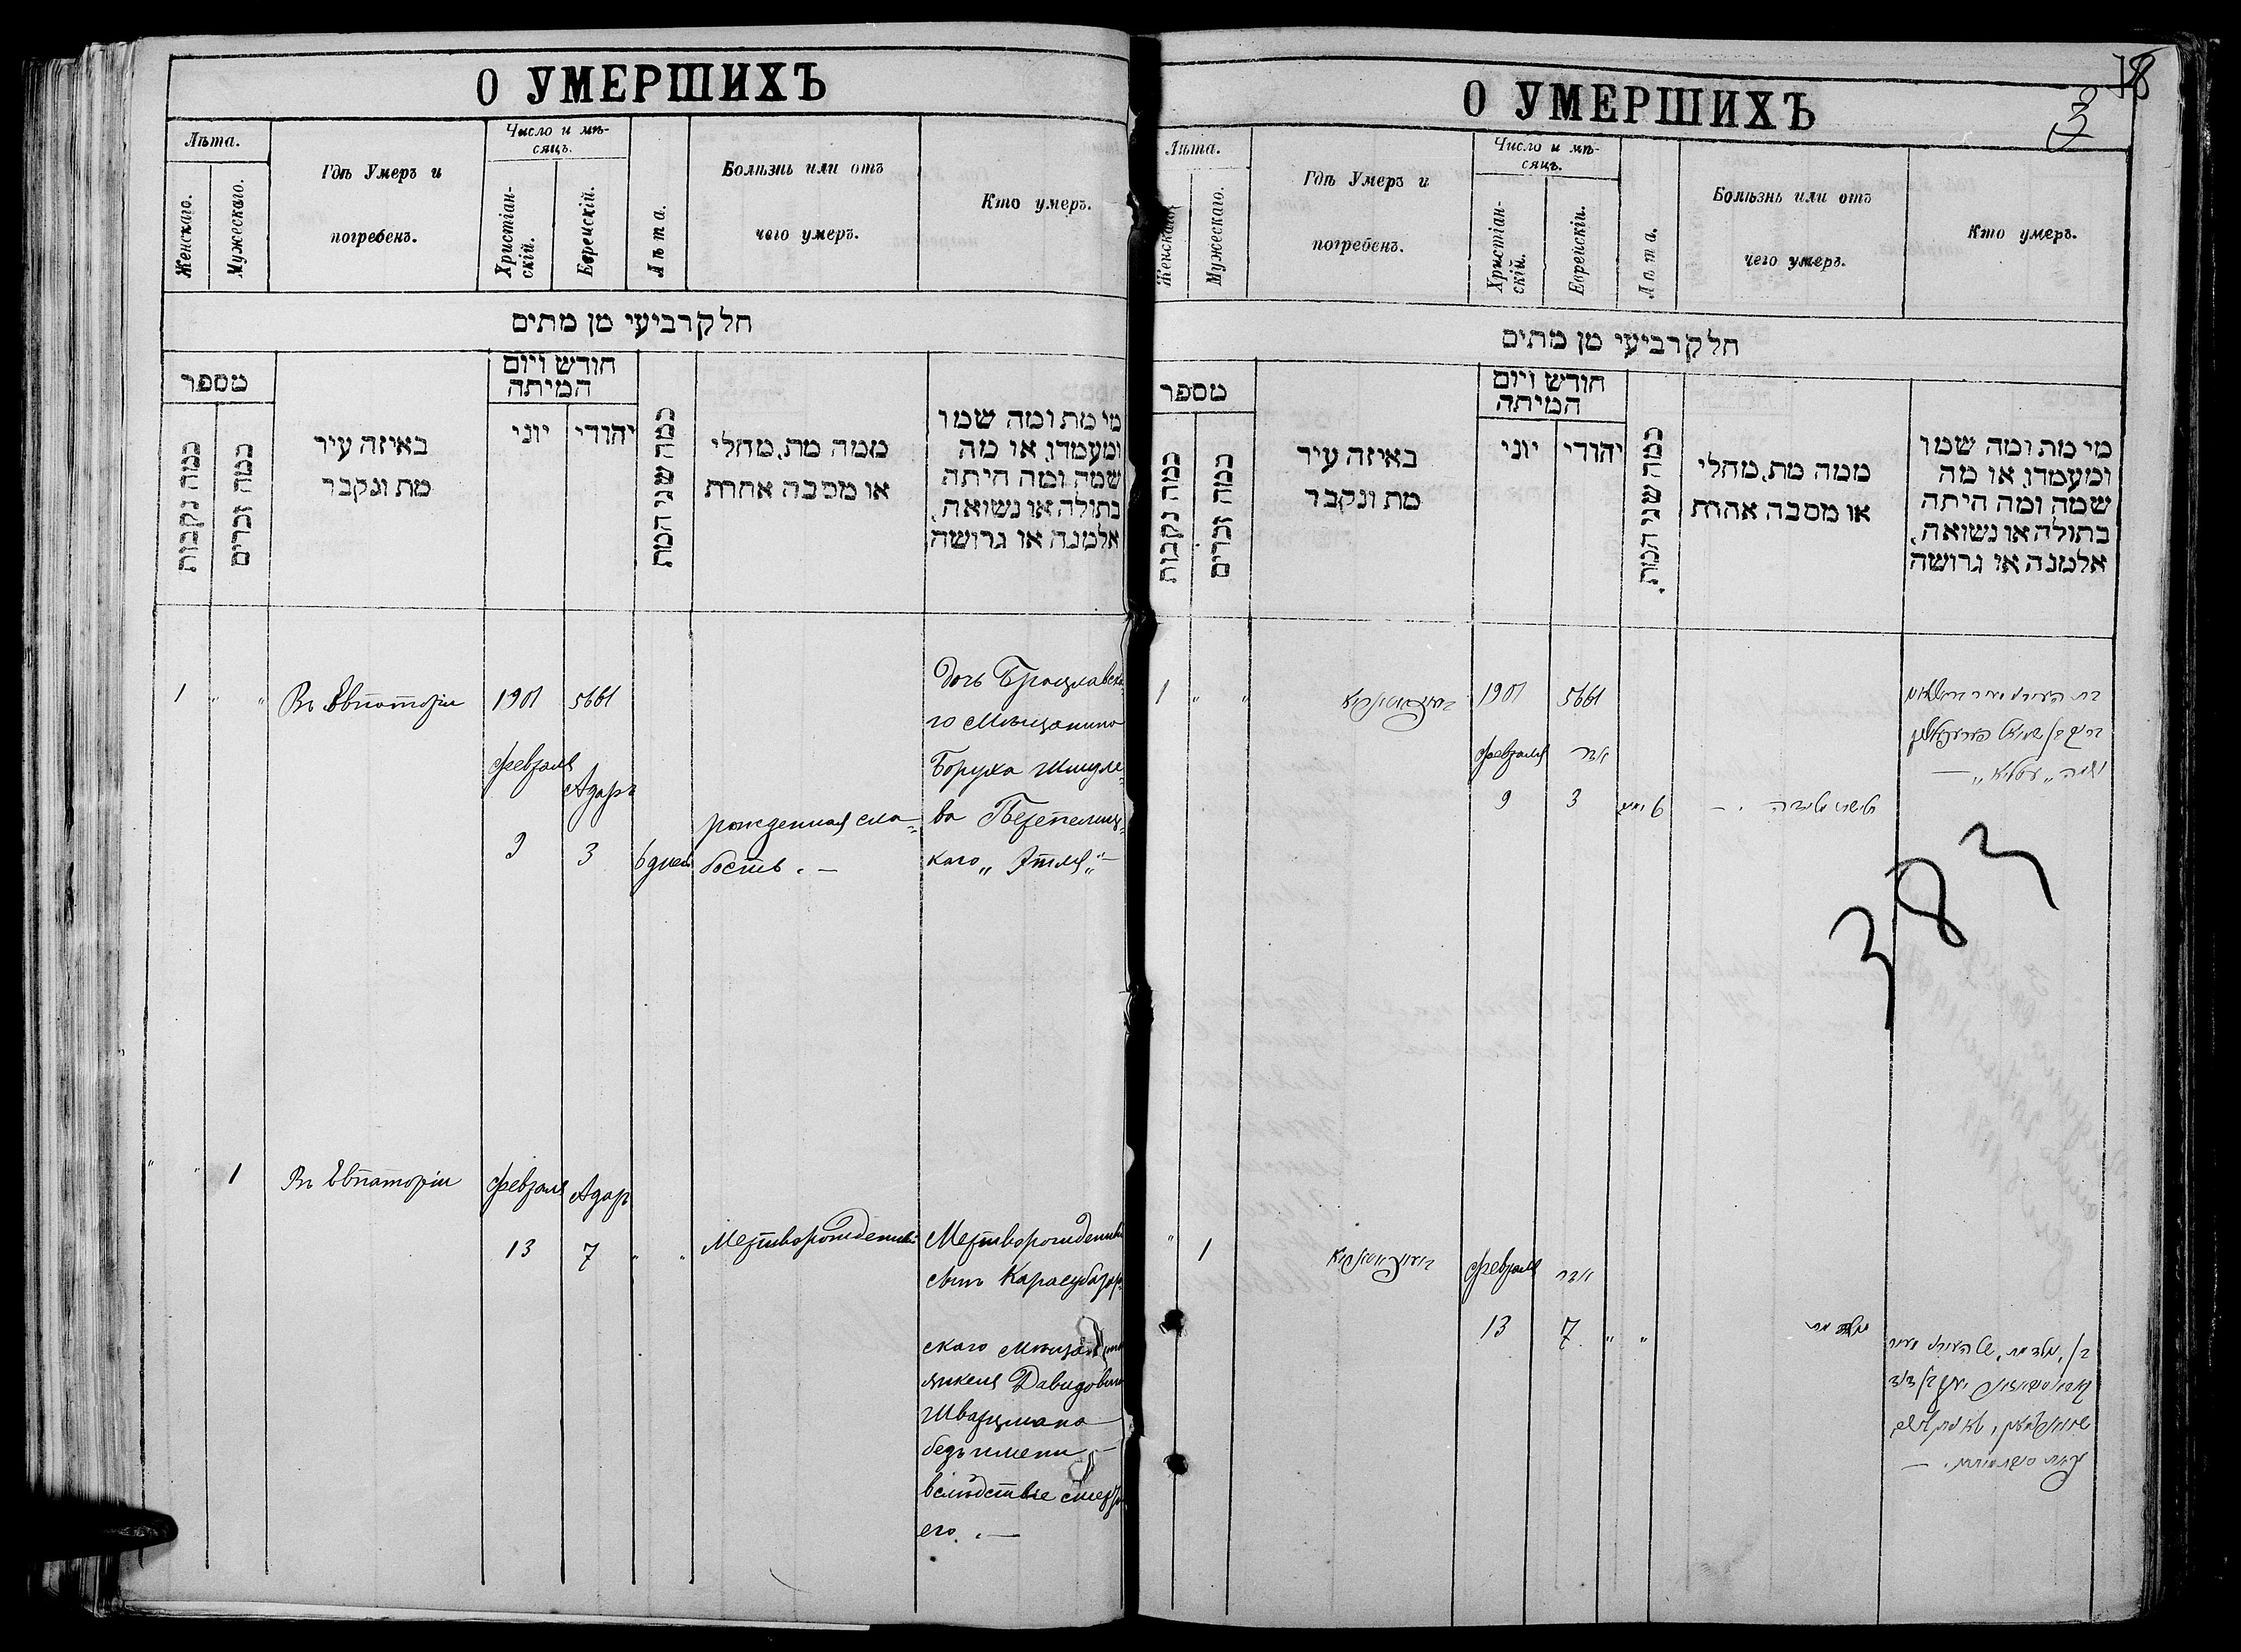 О УМЕРШИХЪ
Лѣта.
Женскаго.
Мужескаго.
Гдѣ Умеръ и
погребенъ.
Число и мѣ-
сяцъ.
Христіан-
скій.
Еврейскій.
Лѣта.
Болѣзнь или отъ
чего умеръ.
Кто умеръ.
חלק רביעי מן מתים
מספר
כמה נקבות
כמה זכרים
באיזה עיר
מת ונקבר
חודש ויום
המיתה
יוני
יהודי
כמה שני המת
ממה מת, מחלי
או מסבה אחרת
מי מת ומה שמו
ומעמדו, או מה
שמה ומה היתה
בתולה או נשואה,
אלמנה או גרושה
1 " "
Въ Евпаторіи
1901
февраля
9
5661
Адаръ
3
6 дней
рожденная сла-
бость. —
дочь Брацлавска-
го Мѣщанина
Боруха Шмуле-
ва Перепелиц-
каго „Этля„ —
" " 1
Въ Евпаторіи
февраля
13
Адаръ
7
" "
Мертворожденный
Мертворожденный
сынъ Карасубазар-
скаго мѣщанина
Янкеля Давидовича
Шварцмана
безъ имени —
вслѣдствіе смерти
его. —
О УМЕРШИХЪ
18
Лѣта.
Женскаго.
Мужескаго.
Гдѣ Умеръ и
погребенъ.
Число и мѣ-
сяцъ.
Христіан-
скій.
Еврейскій.
Лѣта.
Болѣзнь или отъ
чего умеръ.
Кто умеръ.
חלק רביעי מן מתים
מספר
כמה נקבות
כמה זכרים
באיזה עיר
מת ונקבר
חודש ויום
המיתה
יוני
יהודי
כמה שני המת
ממה מת, מחלי
או מסבה אחרת
מי מת ומה שמו
ומעמדו, או מה
שמה ומה היתה
בתולה או נשואה,
אלמנה או גרושה
1 " "
1901
февраля
9
5661
אדר
3
6 ימים
383
" 1
февраля
13
אדר
7
" "